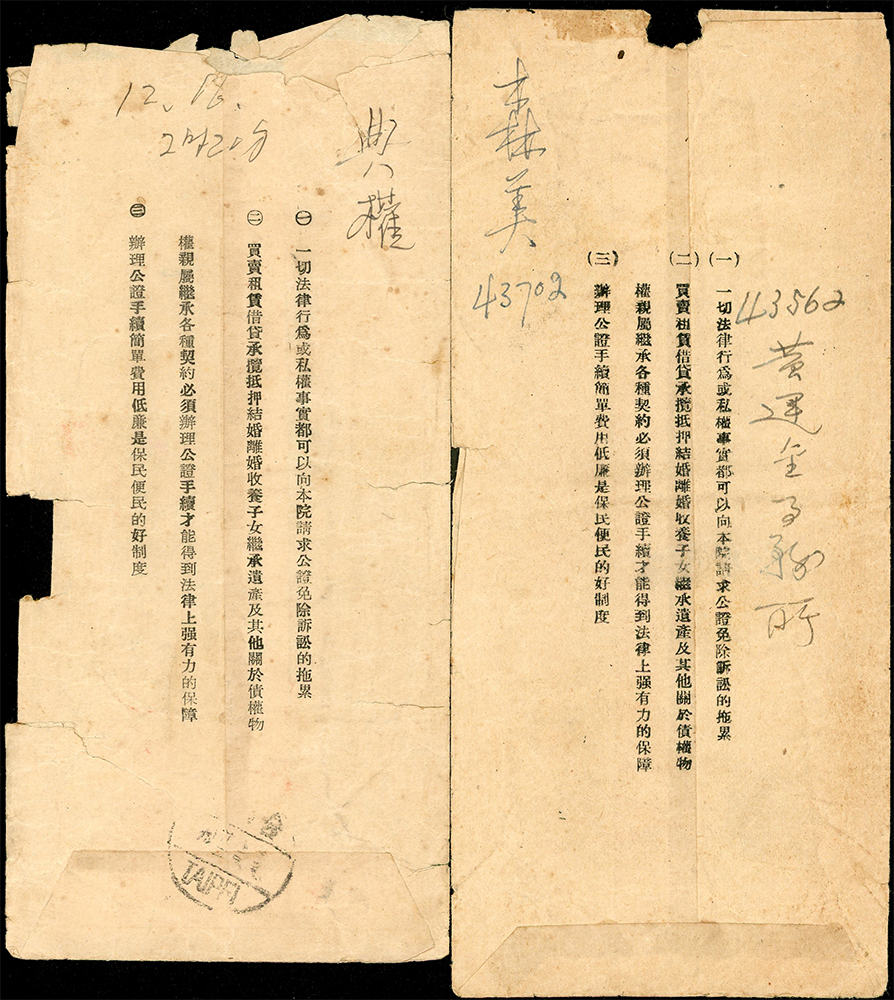 12.16.
2時20分
典權
㊀ 一切法律行爲或私權事實都可以向本院請求公證免除訴訟的拖累
㊁ 買賣租賃借貸承攬抵押結婚離婚收養子女繼承遺產及其他關於債權物
權親屬繼承各種契約必須辦理公證手續才能得到法律上强有力的保障
㊂ 辦理公證手續簡單費用低廉是保民便民的好制度
TAIPEI
森美
43702
43562
黃運金事務所
(一) 一切法律行爲或私權事實都可以向本院請求公證免除訴訟的拖累
(二) 買賣租賃借貸承攬抵押結婚離婚收養子女繼承遺產及其他關於債權物
權親屬繼承各種契約必須辦理公證手續才能得到法律上强有力的保障
(三) 辦理公證手續簡單費用低廉是保民便民的好制度